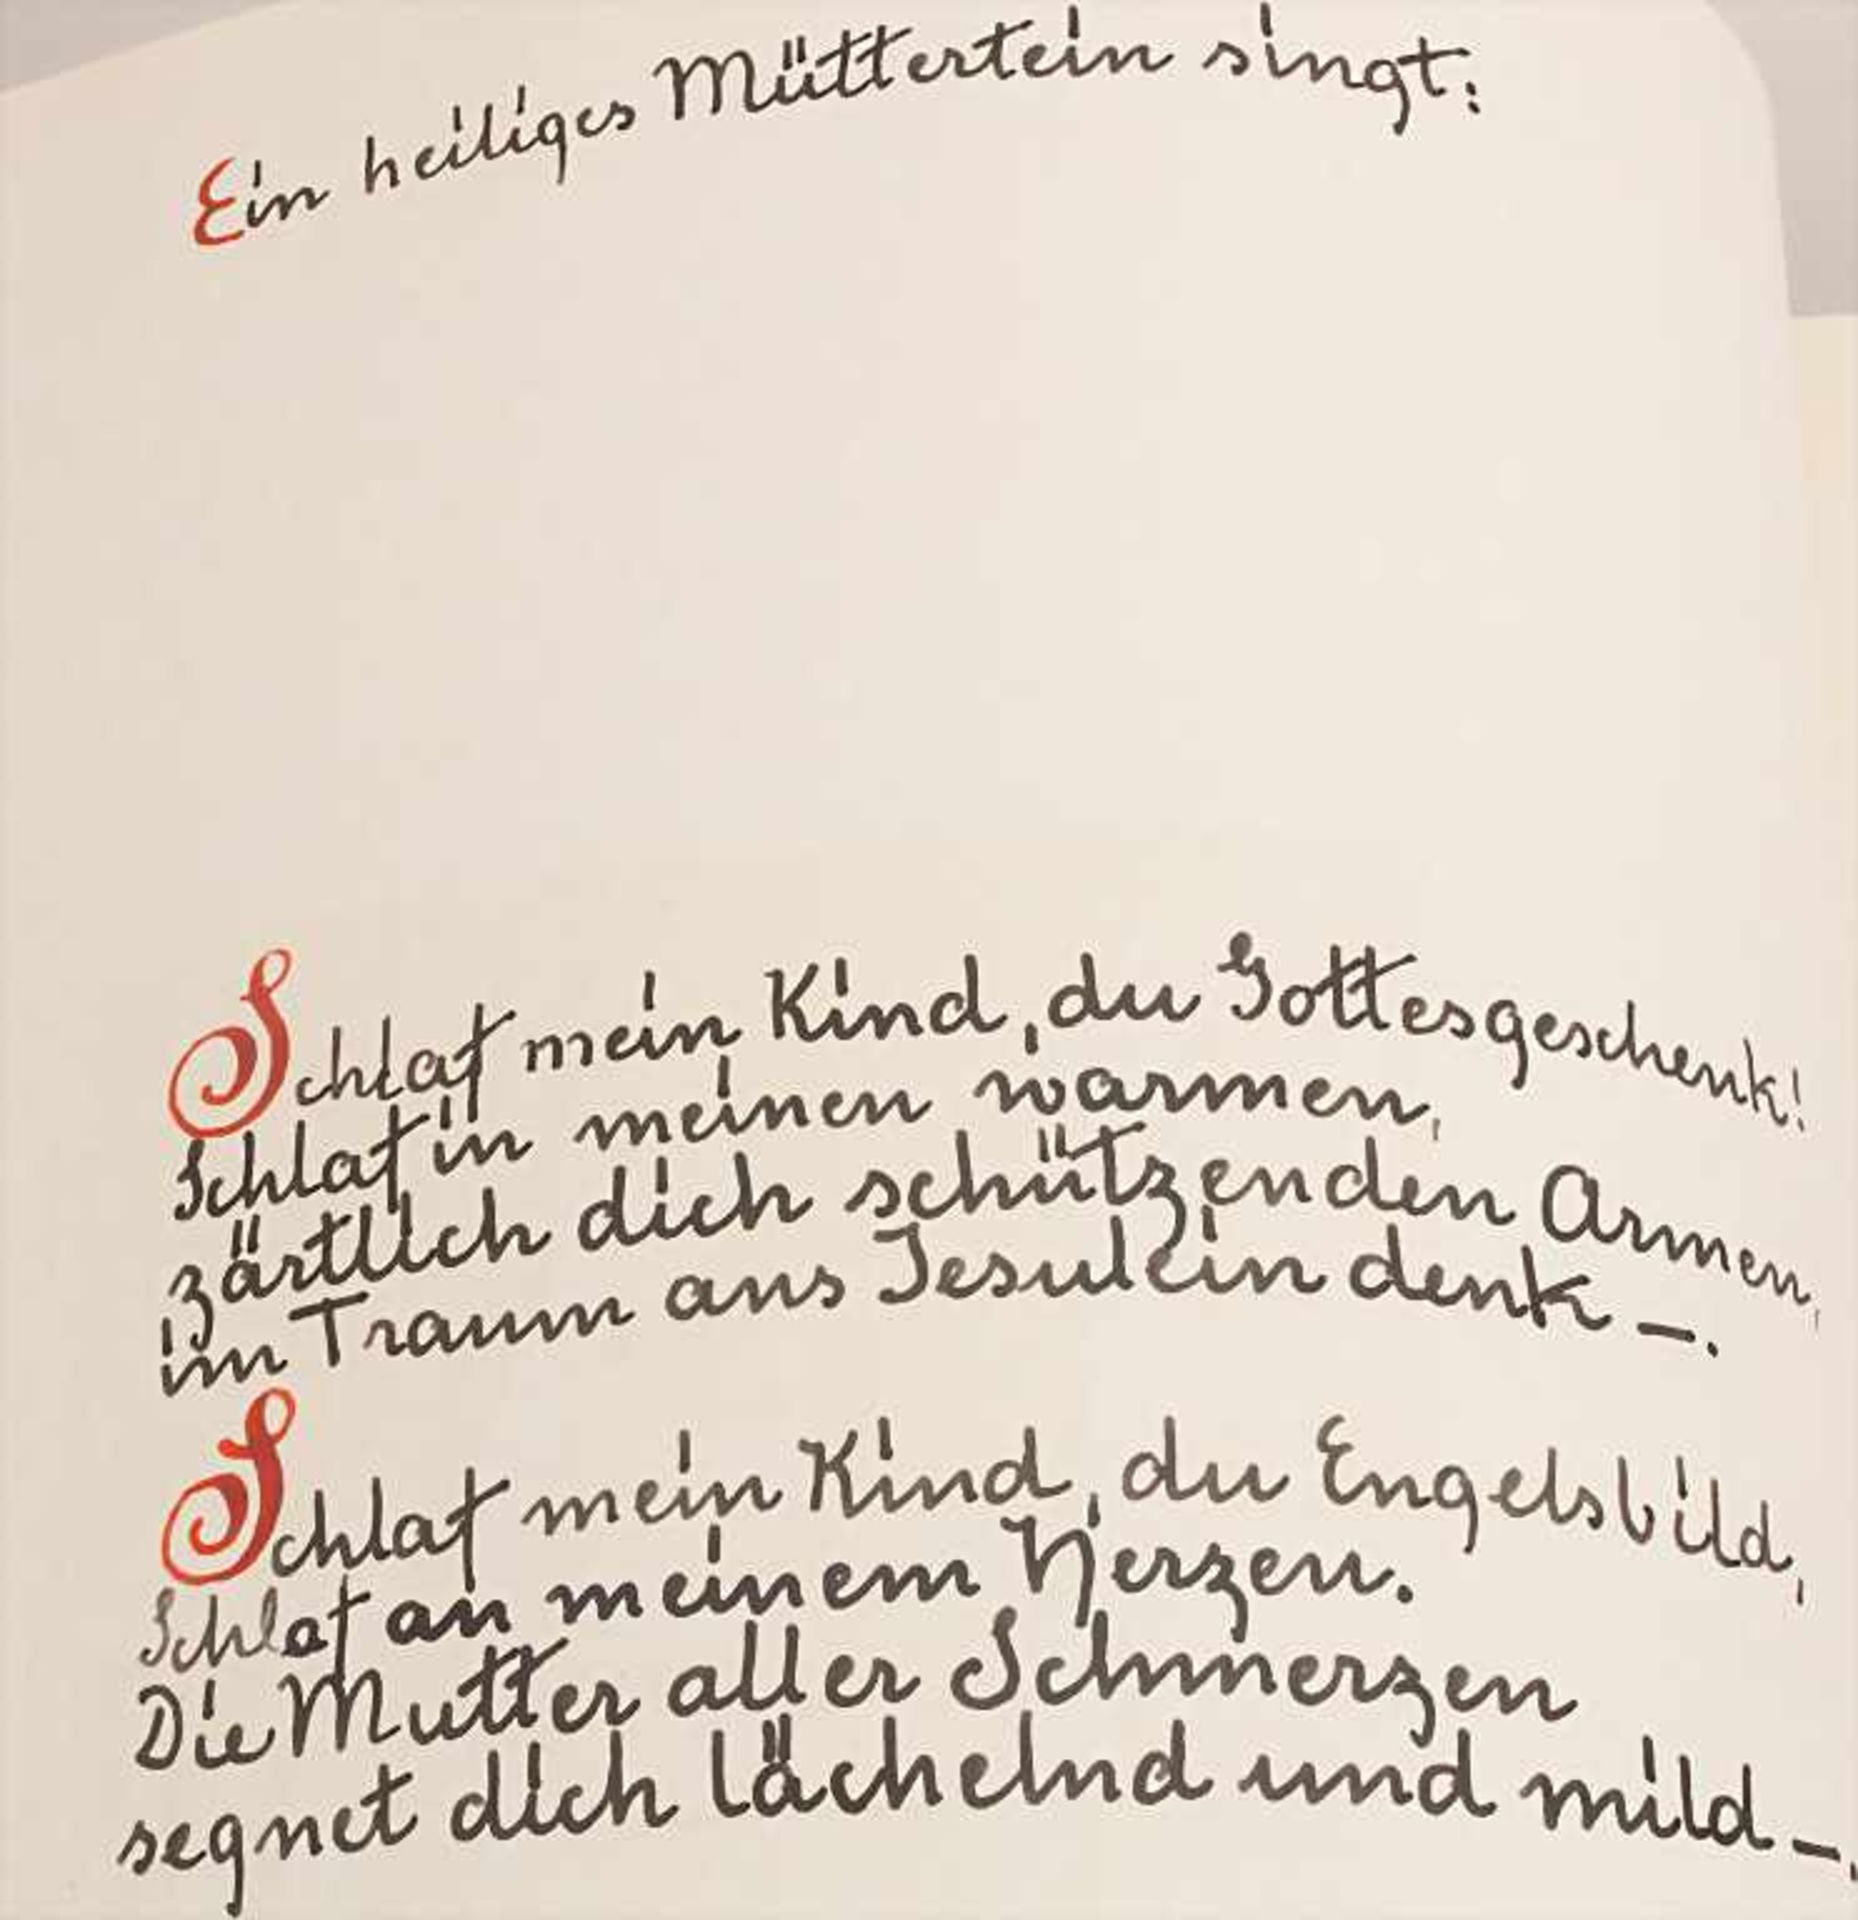 Ein heiliges Müttertein singt:
Schlaf mein Kind, du Gottesgeschenk!
Schlaf in meinen warmen,
zärtlich dich schützenden Armen,
im Traum ans Jesulein denk –.
Schlaf mein Kind, du Engelsbild,
Schlaf an meinem Herzen.
Die Mutter aller Schmerzen
segnet dich lächelnd und mild –.